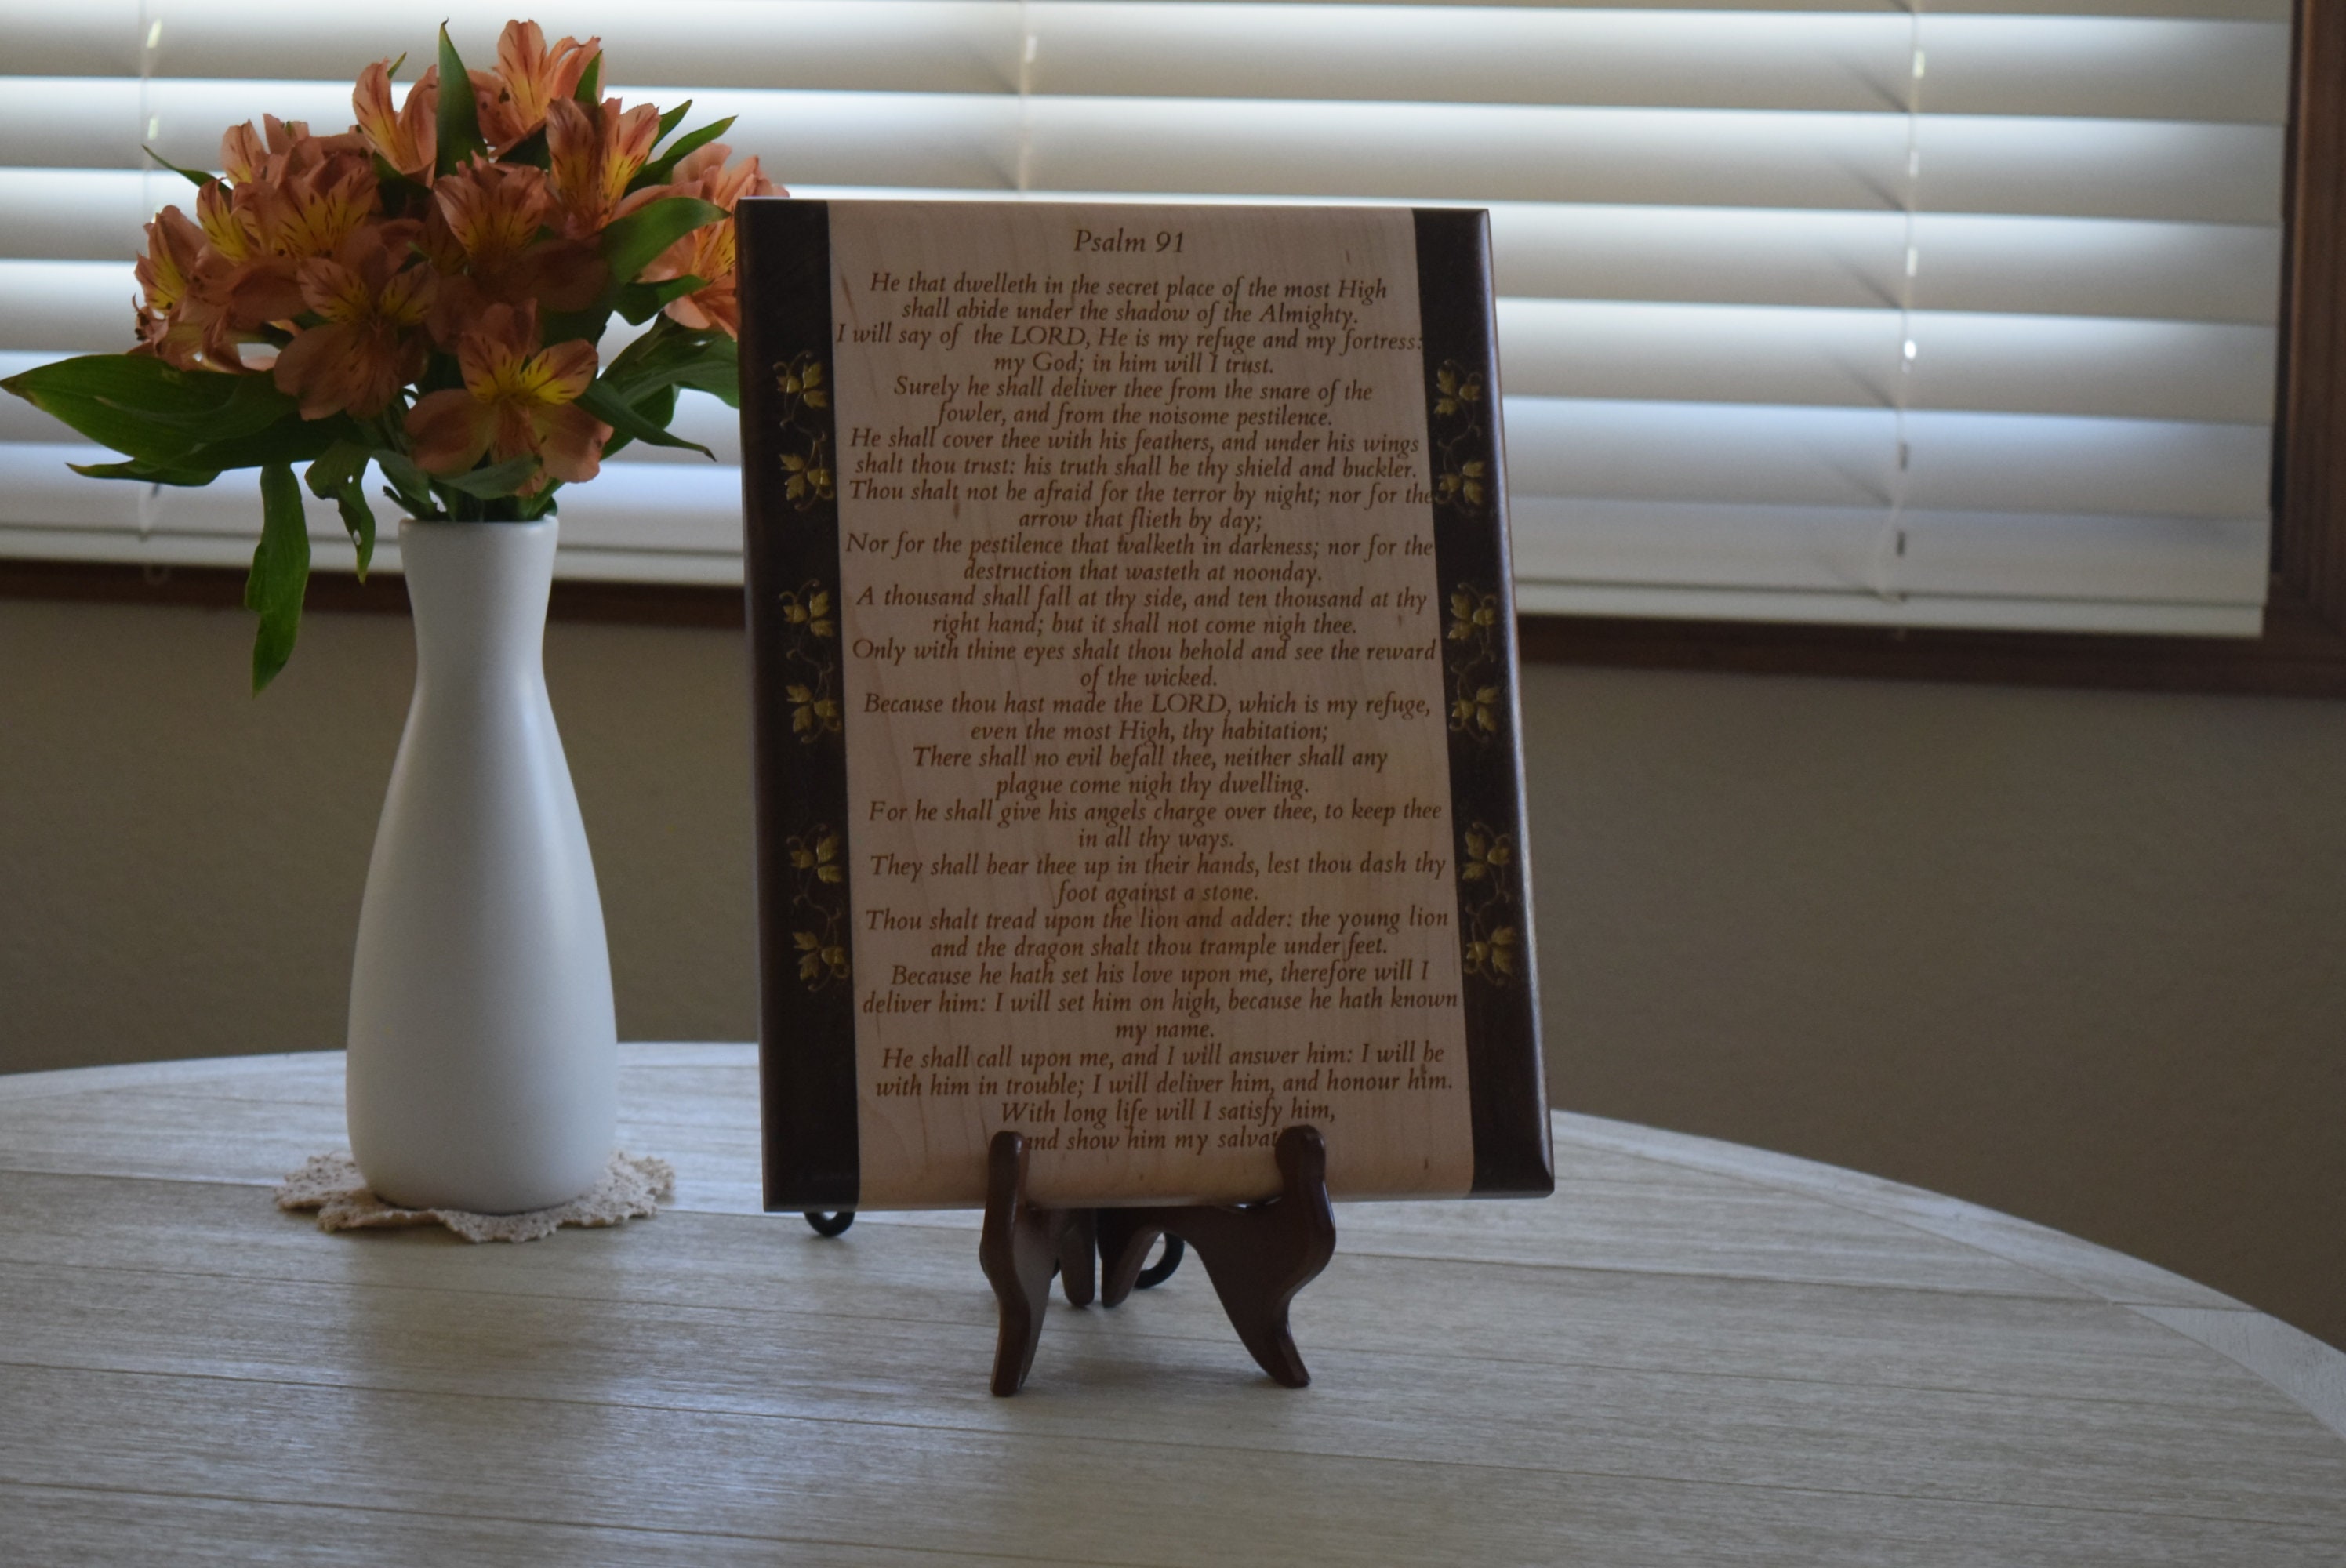 Psalm 91
He that dwelleth in the secret place of the most High
shall abide under the shadow of the Almighty.
I will say of the LORD, He is my refuge and my fortress:
my God; in him will I trust.
Surely he shall deliver thee from the snare of the
fowler, and from the noisome pestilence.
He shall cover thee with his feathers, and under his wings
shalt thou trust: his truth shall be thy shield and buckler.
Thou shalt not be afraid for the terror by night; nor for the
arrow that flieth by day;
Nor for the pestilence that walketh in darkness; nor for the
destruction that wasteth at noonday.
A thousand shall fall at thy side, and ten thousand at thy
right hand; but it shall not come nigh thee.
Only with thine eyes shalt thou behold and see the reward
of the wicked.
Because thou hast made the LORD, which is my refuge,
even the most High, thy habitation;
There shall no evil befall thee, neither shall any
plague come nigh thy dwelling.
For he shall give his angels charge over thee, to keep thee
in all thy ways.
They shall bear thee up in their hands, lest thou dash thy
foot against a stone.
Thou shalt tread upon the lion and adder: the young lion
and the dragon shalt thou trample under feet.
Because he hath set his love upon me, therefore will I
deliver him: I will set him on high, because he hath known
my name.
He shall call upon me, and I will answer him: I will be
with him in trouble; I will deliver him, and honour him.
With long life will I satisfy him,
show him my